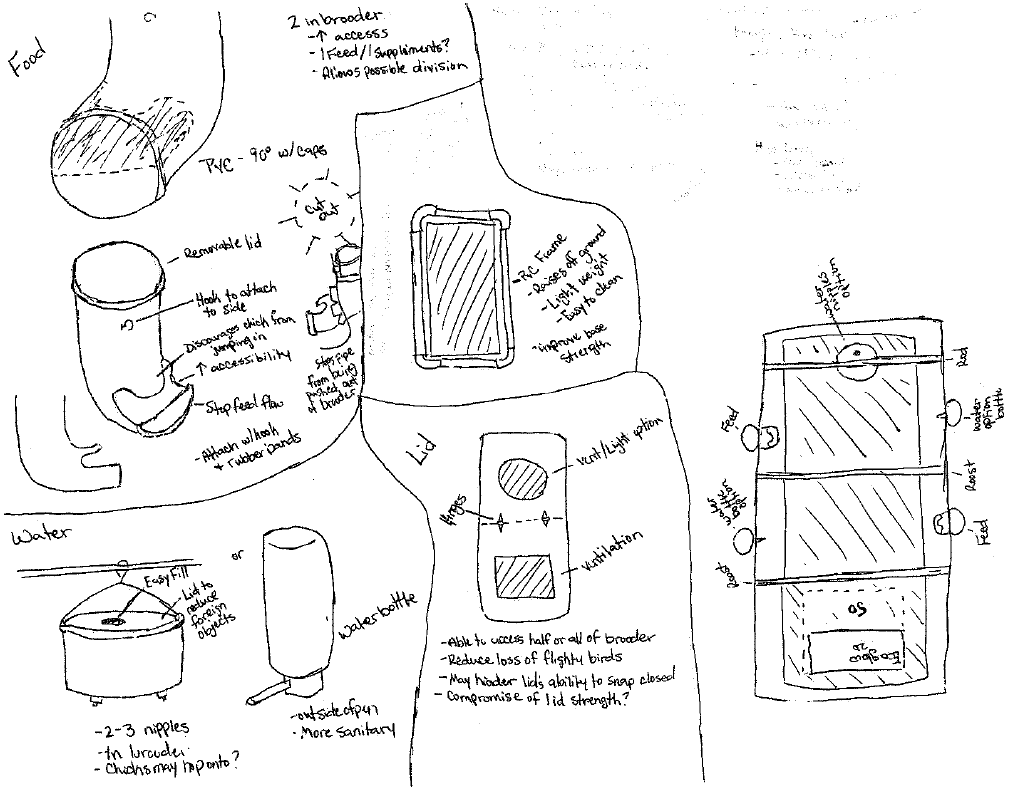 Food
2 in brooder
-↑ accesss
-1 Feed/1 suppliments?
- Allows possible division
PVC - 90° w/caps
cut out
Removable lid
Hook to attach
to side
Discourages chick from
jumping in
↑ accessibility
Stop feed flow
- Attach w/hook
+ rubberbands
Stops pipe
from being
pushed out
of brooder
- PVC Frame
- Raises off ground
- Light weight
- Easy to clean
- improve base
strength
Water
Easy Fill
Lid to
reduce
foreign
objects
or
Water bottle
-2-3 nipples
- In brooder
- Chicks may hop onto?
- outside of pen
- More sanitary
Lid
Vent/Light option
Hinges
Ventilation
- Able to access half or all of brooder
- Reduce loss of flighty birds
- May hinder lid's ability to snap closed
- Compromise of lid strength?
water
option
Rod
Feed
water
option
bottle
Roost
water
bottle
option
Feed
Roost
50
Ecoglow
20